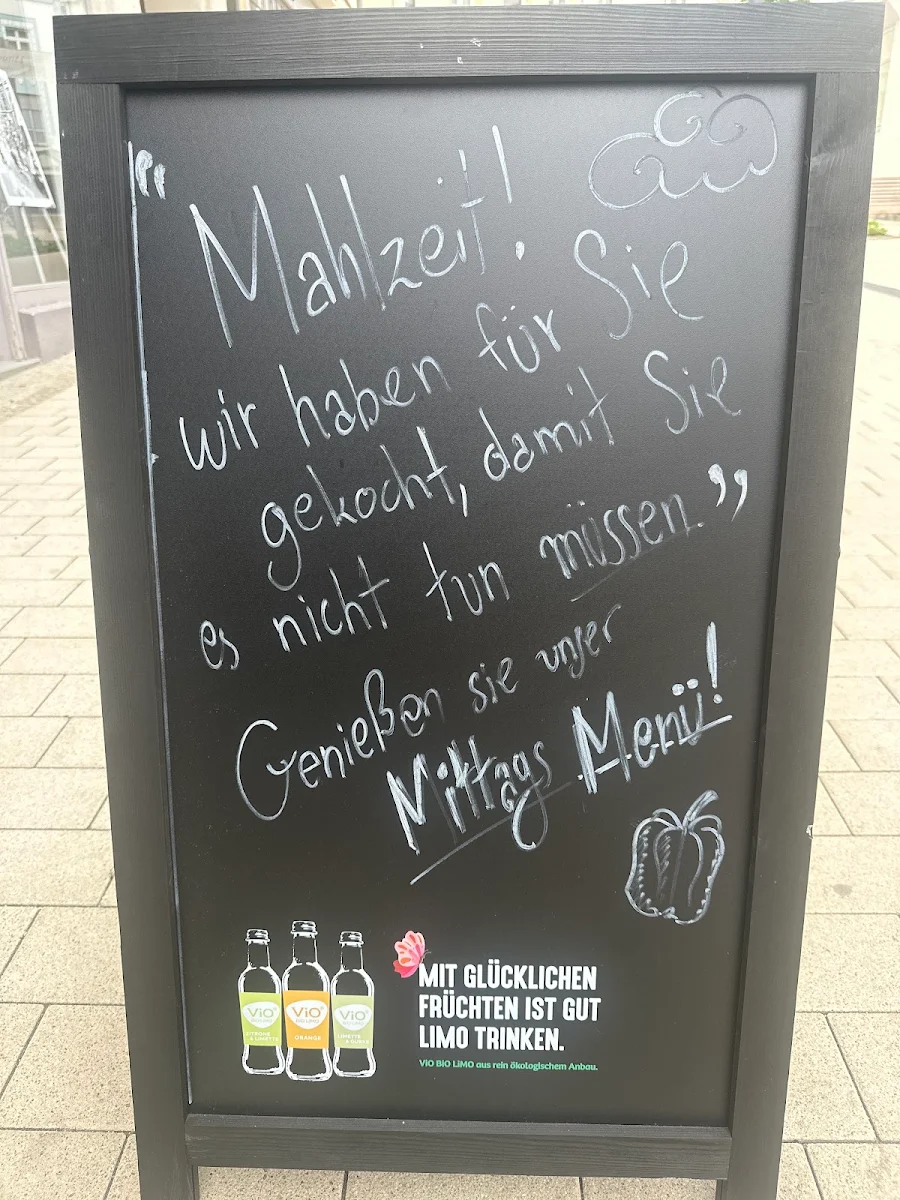 "Mahlzeit!
wir haben für Sie
gekocht, damit Sie
es nicht tun müssen."
Genießen sie unser
Mittags Menü!
ViO
BiO LiMO
ZITRONE
& LIMETTE
ViO
BiO LiMO
ORANGE
ViO
BiO LiMO
LIMETTE
& GURKE
MIT GLÜCKLICHEN
FRÜCHTEN IST GUT
LIMO TRINKEN.
ViO BiO LiMO aus rein ökologischem Anbau.